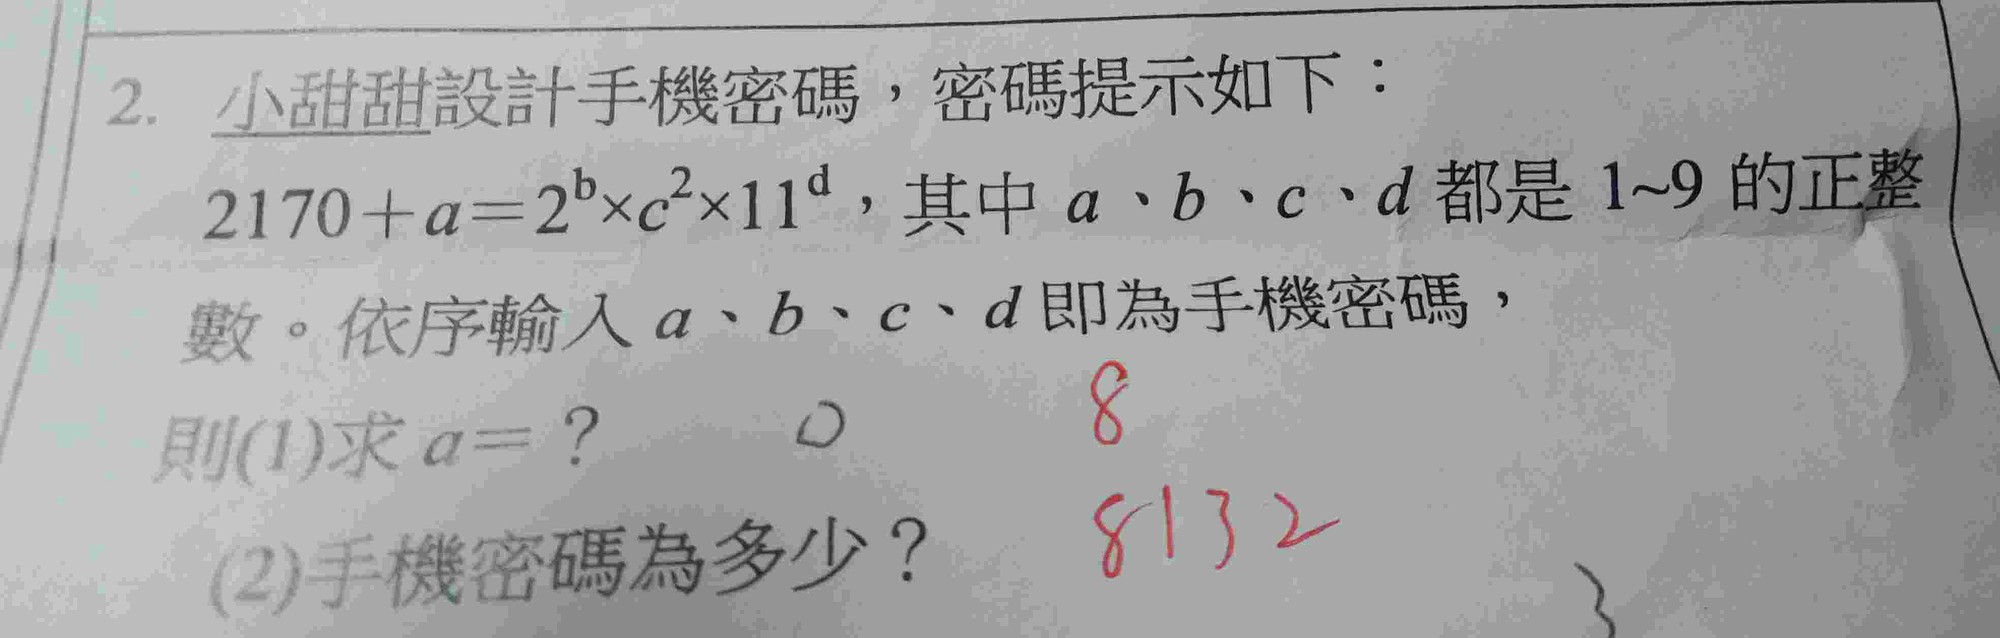 2. 小甜甜設計手機密碼，密碼提示如下：
2170＋a＝2ᵇ×c²×11ᵈ，其中 a、b、c、d 都是 1~9 的正整
數。依序輸入 a、b、c、d 即為手機密碼，
則(1)求 a＝？ 8
(2)手機密碼為多少？ 8132